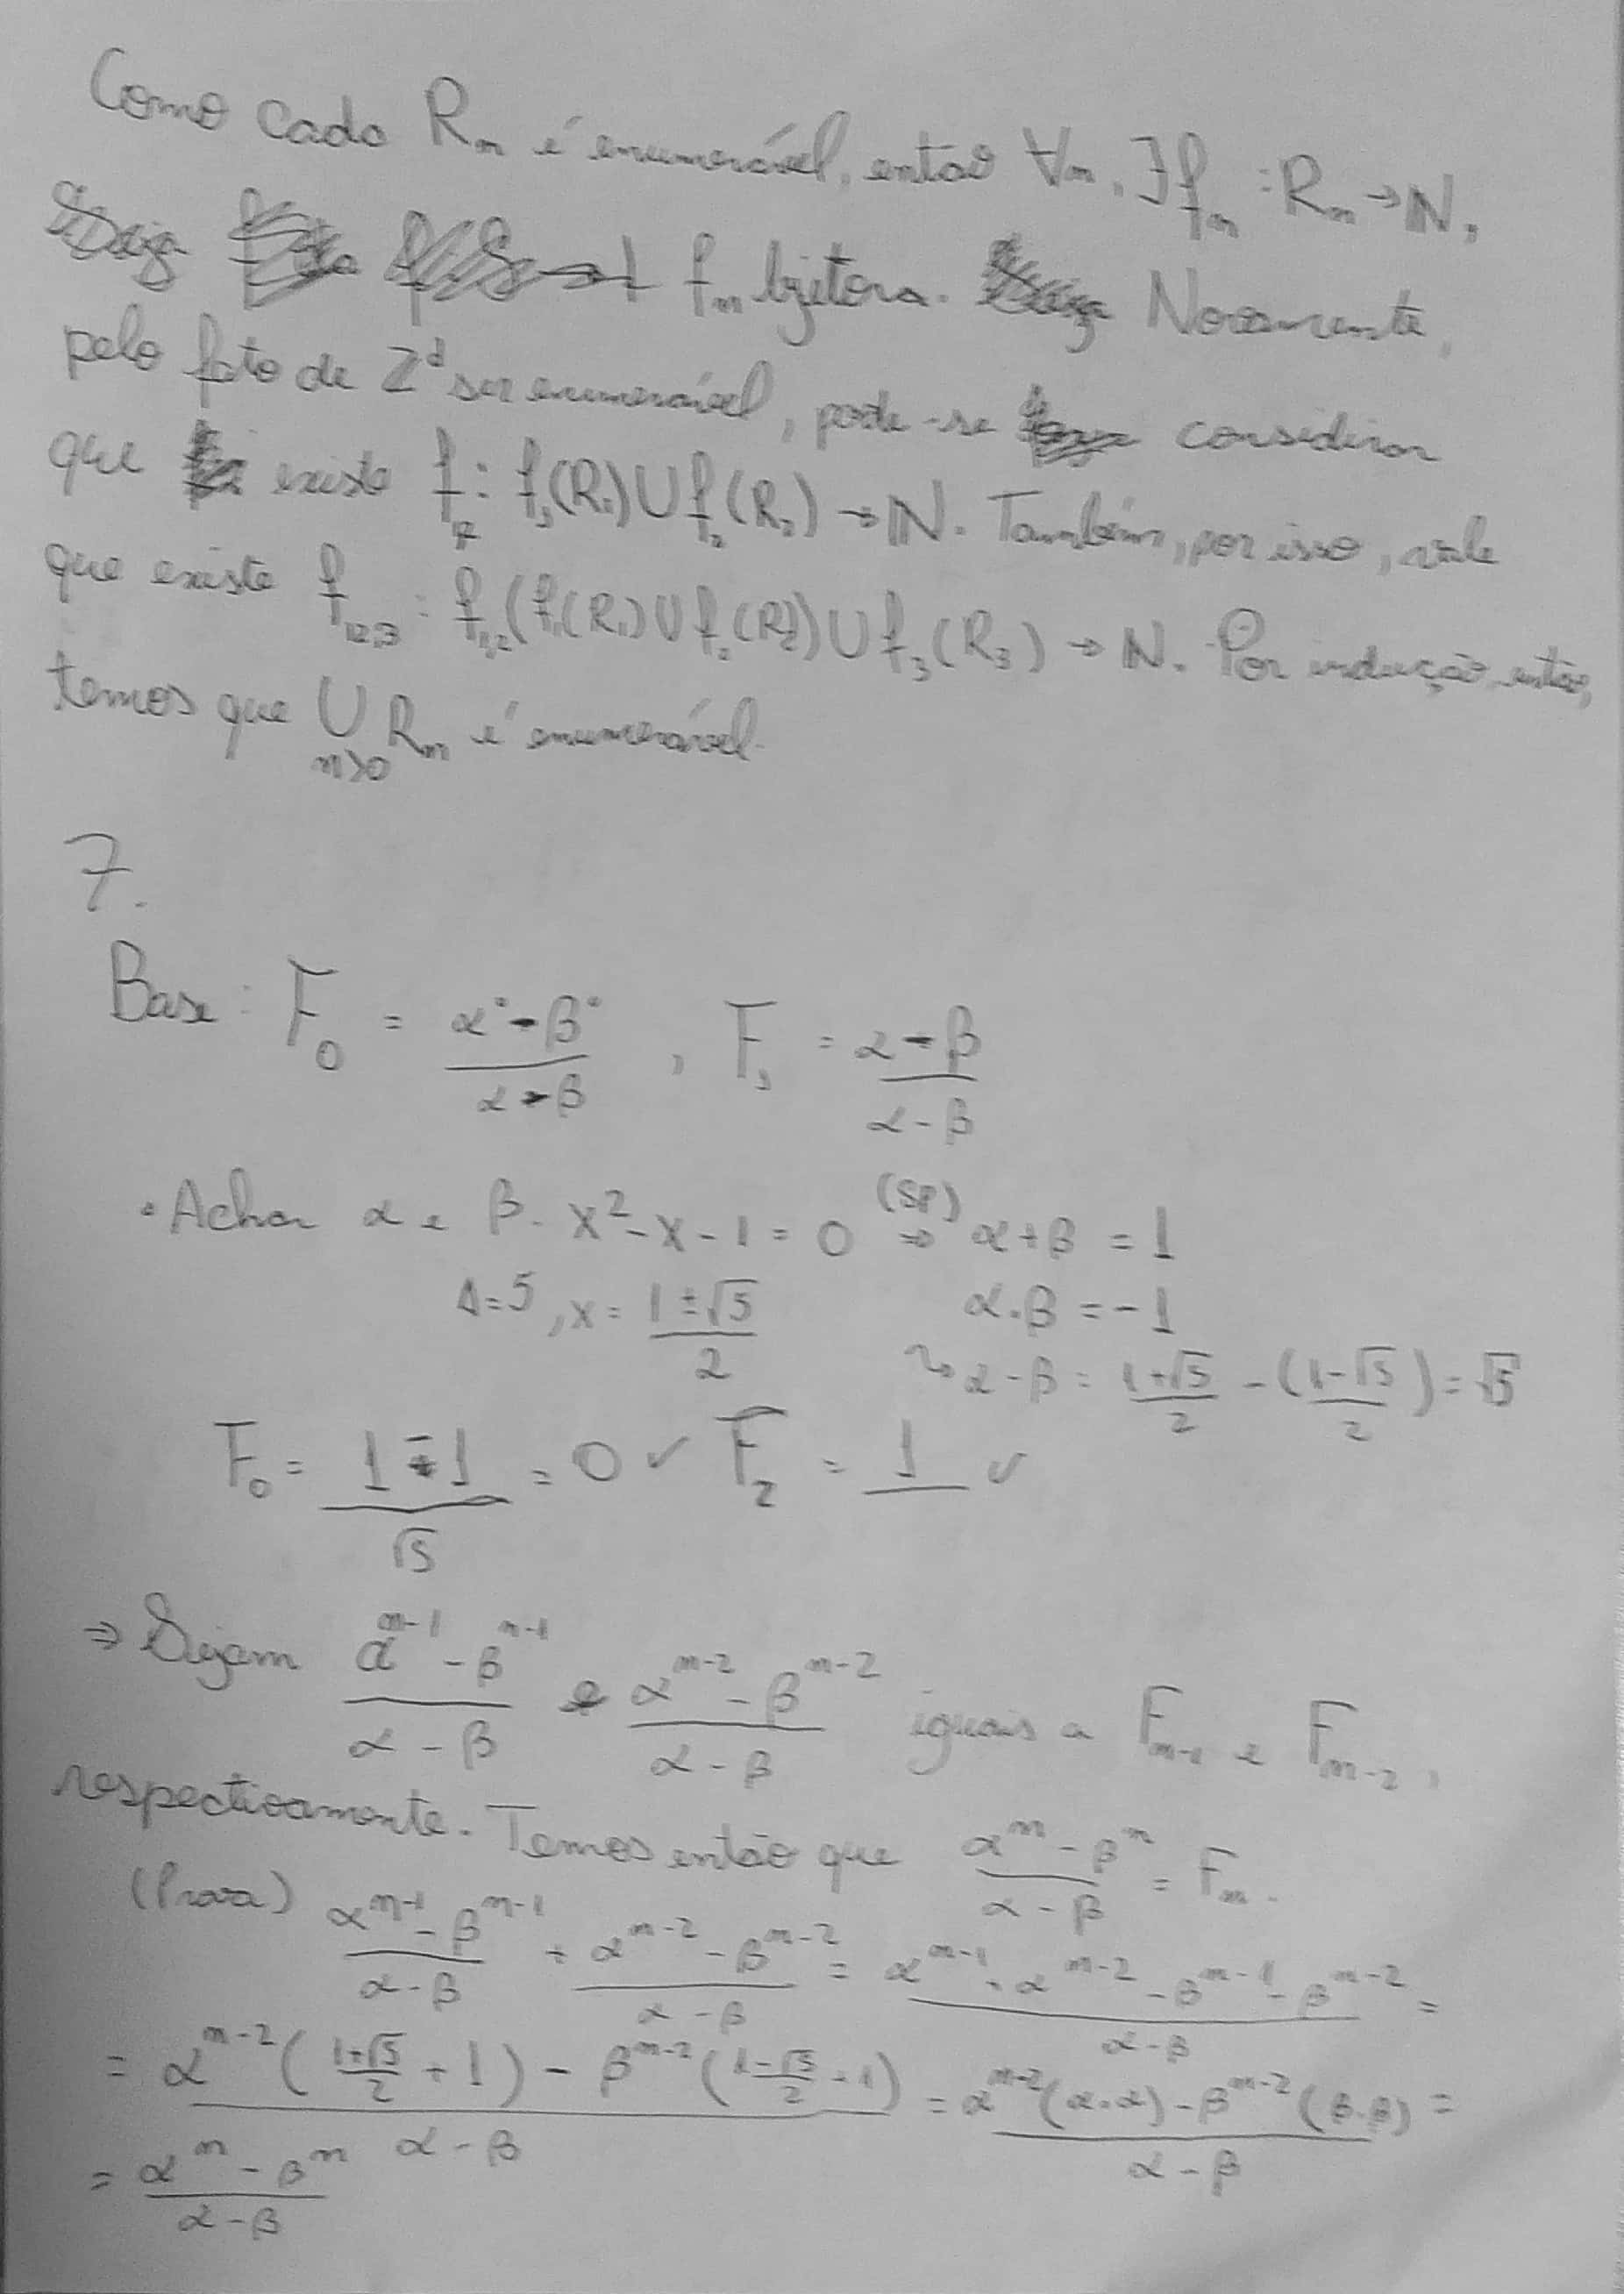 Como cada Rₙ é enumerável, então ∀n, ∃fₙ : Rₙ → ℕ,
fₙ bijetora. Novamente,
pelo fato de ℤᵈ ser enumerável, pode-se considerar
que existe f₁₂ : f₁(R₁) ∪ f₂(R₂) → ℕ. Também, por isso, vale
que existe f₁,₂,₃ : f₁,₂(f₁(R₁) ∪ f₂(R₂)) ∪ f₃(R₃) → ℕ. Por indução, então,
temos que ∪ Rₙ é enumerável.
n>0
7.
Base: F₀ = (α⁰ - β⁰)/(α - β), F₁ = (α - β)/(α - β)
• Achar α e β. x² - x - 1 = 0 (SP) ⇒ α + β = 1
Δ = 5, x = (1 ± √5)/2 α.β = -1
↝ α - β = (1+√5)/2 - ((1-√5)/2) = √5
F₀ = (1 - 1)/√5 = 0 ✓ F₂ = 1 ✓
⇒ Sejam (αⁿ⁻¹ - βⁿ⁻¹)/(α - β) e (αⁿ⁻² - βⁿ⁻²)/(α - β) iguais a Fₙ₋₁ e Fₙ₋₂,
respectivamente. Temos então que (αⁿ - βⁿ)/(α - β) = Fₙ.
(Prova) (αⁿ⁻¹ - βⁿ⁻¹)/(α - β) + (αⁿ⁻² - βⁿ⁻²)/(α - β) = (αⁿ⁻¹ + αⁿ⁻² - βⁿ⁻¹ - βⁿ⁻²)/(α - β) =
= (αⁿ⁻²((1+√5)/2 + 1) - βⁿ⁻²((1-√5)/2 + 1))/(α - β) = (αⁿ⁻²(α.α) - βⁿ⁻²(β.β))/(α - β) =
= (αⁿ - βⁿ)/(α - β)